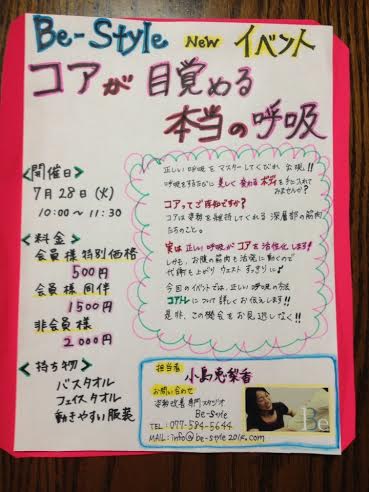 Be-Style New イベント
コアが 目覚める
本当の呼吸
<開催日>
7月28日(火)
10:00〜11:30
<料金>
会員様特別価格
500円
会員様同伴
1500円
非会員様
2000円
<持ち物>
バスタオル
フェイスタオル
動きやすい服装
正しい呼吸をマスターしてくびれ出現!!
呼吸を意識し美しく変わるボディを手に入れて
みませんか?
コアってご存知ですか?
コアは姿勢を維持してくれる深層部の筋肉
たちのこと。
実は正しい呼吸がコアを活性化します!
しかも、お腹の筋肉も活発に動くので
代謝も上がりウエストすっきりに♪
今回のイベントでは、正しい呼吸の方法
コアトレについて詳しくお伝えします!!
是非、この機会をお見逃しなく!!
担当者
小島恵梨香
お問い合わせ
姿勢改善専門スタジオ
Be-Style
TEL:077-584-5644
MAIL:info@be-style2014.com
Be